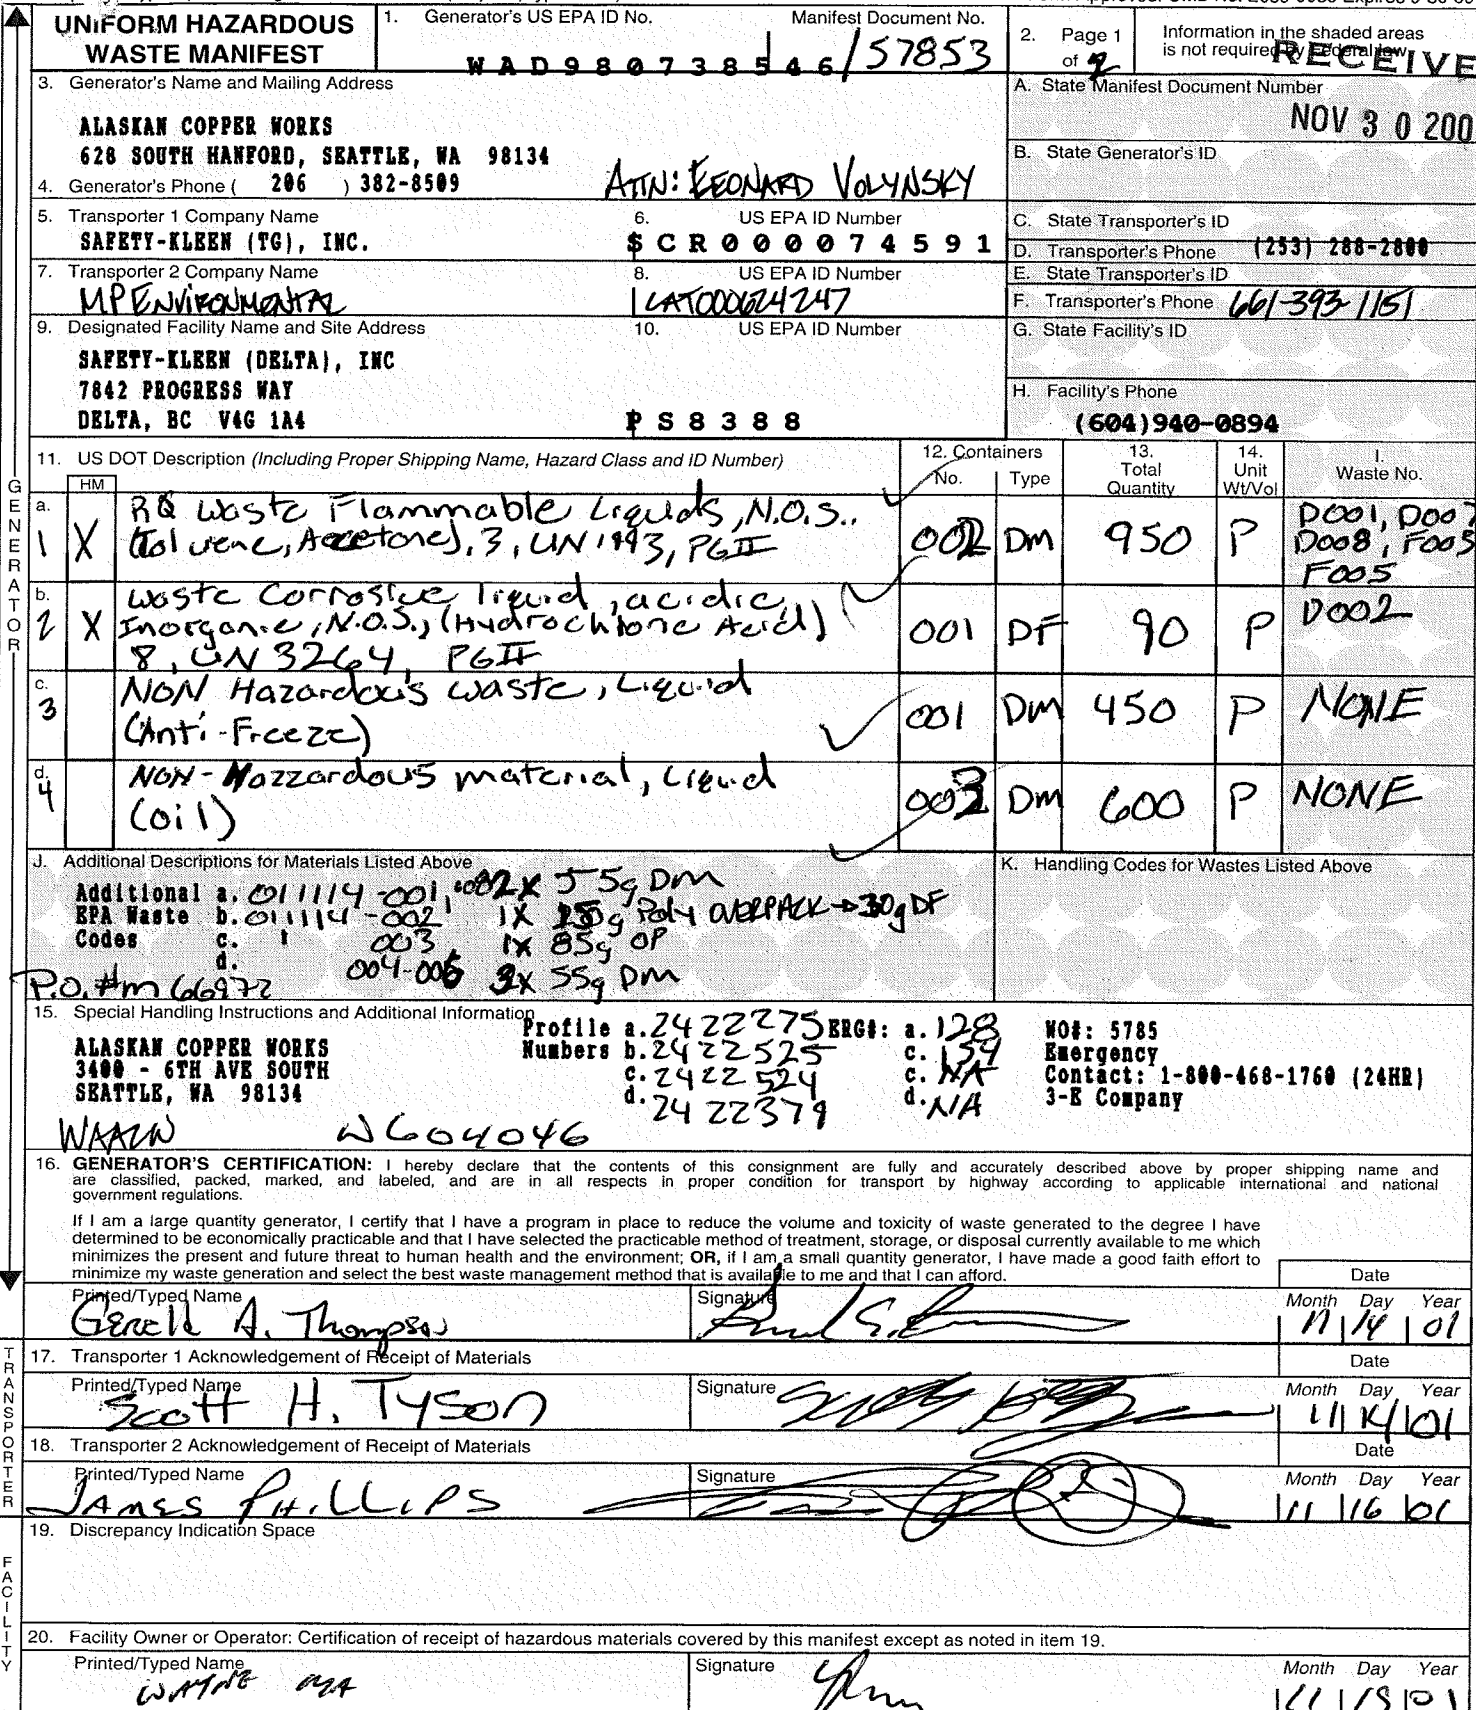 UNIFORM HAZARDOUS WASTE MANIFEST
1. Generator's US EPA ID No. Manifest Document No.
WAD980738546/57853
2. Page 1 of 2
Information in the shaded areas is not required by Federal law.
RECEIVE
3. Generator's Name and Mailing Address
ALASKAN COPPER WORKS
628 SOUTH HANFORD, SEATTLE, WA 98134
4. Generator's Phone ( 206 ) 382-8509
ATTN: LEONARD VOLYNSKY
A. State Manifest Document Number
NOV 30 200
B. State Generator's ID
5. Transporter 1 Company Name
SAFETY-KLEEN (TG), INC.
6. US EPA ID Number
SCR000074591
C. State Transporter's ID
D. Transporter's Phone (253) 288-2800
7. Transporter 2 Company Name
MP ENVIRONMENTAL
8. US EPA ID Number
CAT000624247
E. State Transporter's ID
F. Transporter's Phone 661-393-1151
9. Designated Facility Name and Site Address
SAFETY-KLEEN (DELTA), INC
7842 PROGRESS WAY
DELTA, BC V4G 1A4
10. US EPA ID Number
PS8388
G. State Facility's ID
H. Facility's Phone
(604)940-0894
11. US DOT Description (Including Proper Shipping Name, Hazard Class and ID Number)
HM
12. Containers
No. Type
13. Total Quantity
14. Unit Wt/Vol
I. Waste No.
GENERATOR
a. 1 X RQ Waste Flammable Liquids, N.O.S..
(Toluene, Acetone), 3, UN1993, PGII
002 DM 950 P D001, D007
D008, F003
F005
b. 2 X Waste Corrosive liquid, acidic,
Inorganic, N.O.S., (Hydrochloric Acid)
8, UN 3264, PGII
001 DF 90 P D002
c. 3 NON Hazardous waste, Liquid
(Anti-Freeze)
001 DM 450 P NONE
d. 4 NON-Hazzardous material, Liquid
(oil)
003 DM 600 P NONE
J. Additional Descriptions for Materials Listed Above
K. Handling Codes for Wastes Listed Above
Additional a. 011114-001, 2X 55g DM
EPA Waste b. 011114-002 1X Poly OVERPACK → 30g DF
Codes c. 003 1X 85g OP
d. 004-006 3X 55g DM
P.O. #M 66972
15. Special Handling Instructions and Additional Information
ALASKAN COPPER WORKS
3400 - 6TH AVE SOUTH
SEATTLE, WA 98134
Profile a. 2422275 ERG#: a. 128
Numbers b. 2422525 c. 154
c. 2422524 c. NA
d. 2422379 d. N/A
WO#: 5785
Emergency
Contact: 1-800-468-1760 (24HR)
3-E Company
WG04046
16. GENERATOR'S CERTIFICATION: I hereby declare that the contents of this consignment are fully and accurately described above by proper shipping name and
are classified, packed, marked, and labeled, and are in all respects in proper condition for transport by highway according to applicable international and national
government regulations.
If I am a large quantity generator, I certify that I have a program in place to reduce the volume and toxicity of waste generated to the degree I have
determined to be economically practicable and that I have selected the practicable method of treatment, storage, or disposal currently available to me which
minimizes the present and future threat to human health and the environment; OR, if I am a small quantity generator, I have made a good faith effort to
minimize my waste generation and select the best waste management method that is available to me and that I can afford.
Date
Printed/Typed Name
Gerald A. Thompson
Signature
Month Day Year
11 14 01
TRANSPORTER
17. Transporter 1 Acknowledgement of Receipt of Materials
Date
Printed/Typed Name
Scott H. Tyson
Signature
Month Day Year
11 14 01
18. Transporter 2 Acknowledgement of Receipt of Materials
Date
Printed/Typed Name
JAMES PHILLIPS
Signature
Month Day Year
11 16 01
FACILITY
19. Discrepancy Indication Space
20. Facility Owner or Operator: Certification of receipt of hazardous materials covered by this manifest except as noted in item 19.
Printed/Typed Name
WAYNE
Signature
Month Day Year